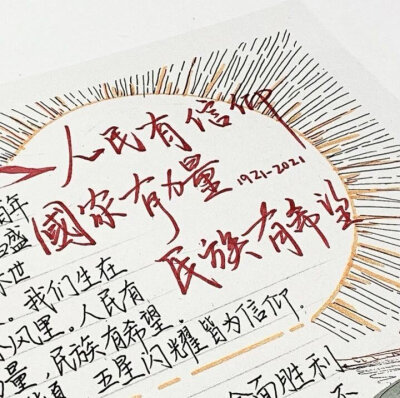 人民有信仰
國家有力量
1921-2021
民族有希望
百年
盛
世
。我们生在
风里。人民有
量,民族有希望。
五星闪耀皆为信仰.
全面胜利